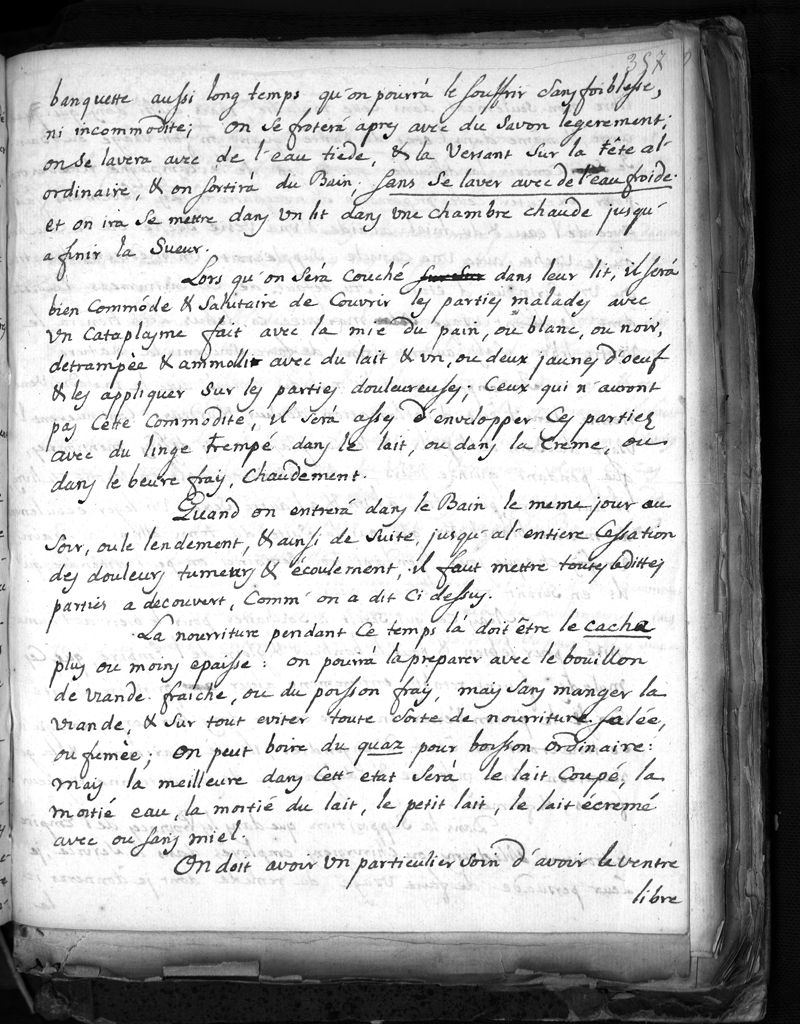 357
banquette aussi long temps qu'on pourrá le souffrir sans foiblesse,
ni incommodité; on se froterá apres avec du savon legerement;
on se lavera avec de l'eau tiede, & la versant sur la tête al'
ordinaire, & on sortirá du Bain, sans se laver avec de l'eau froide.
et on irá se mettre dans un lit dans une chambre chaude jusqu'
a finir la sueur.
Lors qu'on será couché dans leur lit, il será
bien Commóde & salutaire de Couvrir les parties malades avec
un Cataplasme fait avec la mie du pain, ou blanc, ou noir,
detrampèe & ammollir avec du lait & un, ou deux jaunes d'oeuf
& les appliquer sur les parties douleureuses; Ceux qui n'auront
pas Cette Commodité, il será assez d'envelopper Ces parties
avec du linge trempé dans le lait, ou dans la Creme, ou
dans le beure frais, Chaudement.
Quand on entrerá dans le Bain le meme jour au
soir, oule lendement, & ainsi de suite, jusqu'al'entiere Cessation
des douleurs tumeurs & écoulement, il faut mettre toutes edittes
parties a decouvert, Comm' on a dit Ci dessus.
La nourriture pendant Ce temps lá doit être le cacha
plus ou moins epaisse: on pourrá la preparer avec le bouillon
de viande fraiche, ou du poisson frais, mais sans manger la
viande, & sur tout eviter toute sorte de nourriture salée,
ou fumèe; on peut boire du quaz pour boisson ordinaire:
mais la meilleure dans Cett' etat será le lait Coupé, la
moitié eau, la moitié du lait, le petit lait, le lait écremé
avec ou sans miel.
On doit avoir un particulier soin d'avoir le ventre
libre